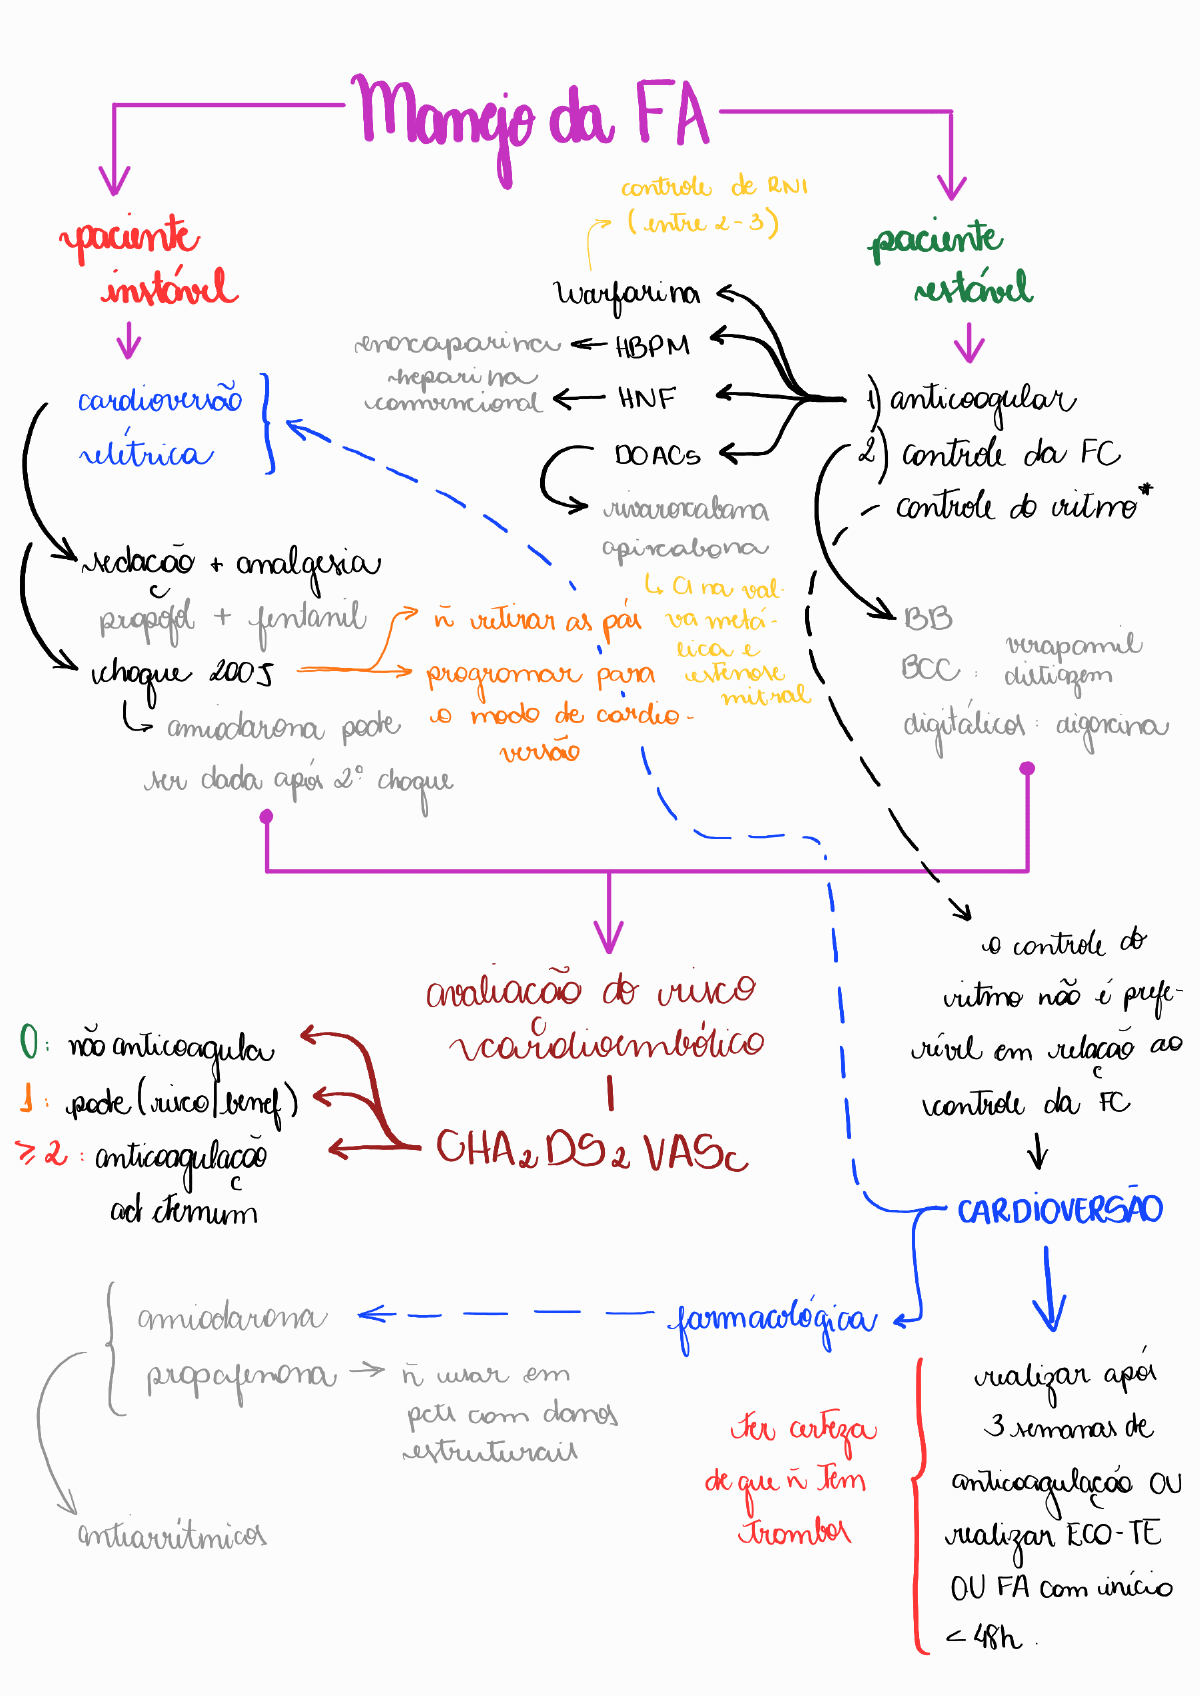 Manejo da FA
paciente
instável
cardioversão
elétrica
sedação + analgesia
propofol + fentanil
choque 200J
amiodarona pode
ser dada após 2º choque
ñ retirar as pás
programar para
o modo de cardio-
versão
controle de RNI
(entre 2-3)
Warfarina
HBPM
enoxaparina
HNF
heparina
convencional
DOACs
rivaroxabana
apixabana
↳ CI na vál-
va metá-
lica e
estenose
mitral
paciente
estável
1) anticoagular
2) controle da FC
controle do ritmo*
BB
BCC: verapamil
diltiazem
digitálicos: digoxina
avaliação do risco
cardioembólico
CHA₂DS₂VASc
0: não anticoagula
1: pode (risco/benef)
≥2: anticoagulação
ad eternum
o controle do
ritmo não é prefe-
rível em relação ao
controle da FC
CARDIOVERSÃO
farmacológica
amiodarona
propafenona → ñ usar em
pcts com danos
estruturais
antiarrítmicos
ter certeza
de que ñ tem
trombos
realizar após
3 semanas de
anticoagulação OU
realizar ECO-TE
OU FA com início
< 48h.